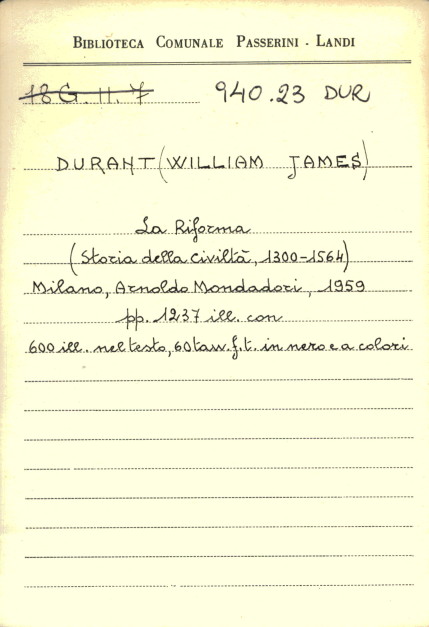 BIBLIOTECA COMUNALE PASSERINI - LANDI
18 G. II. 7 940.23 DUR
DURANT (WILLIAM JAMES)
La Riforma
(Storia della civiltà, 1300-1564)
Milano, Arnoldo Mondadori, 1959
pp. 1237 ill. con
600 ill. nel testo, 60 tavv. f. t. in nero e a colori